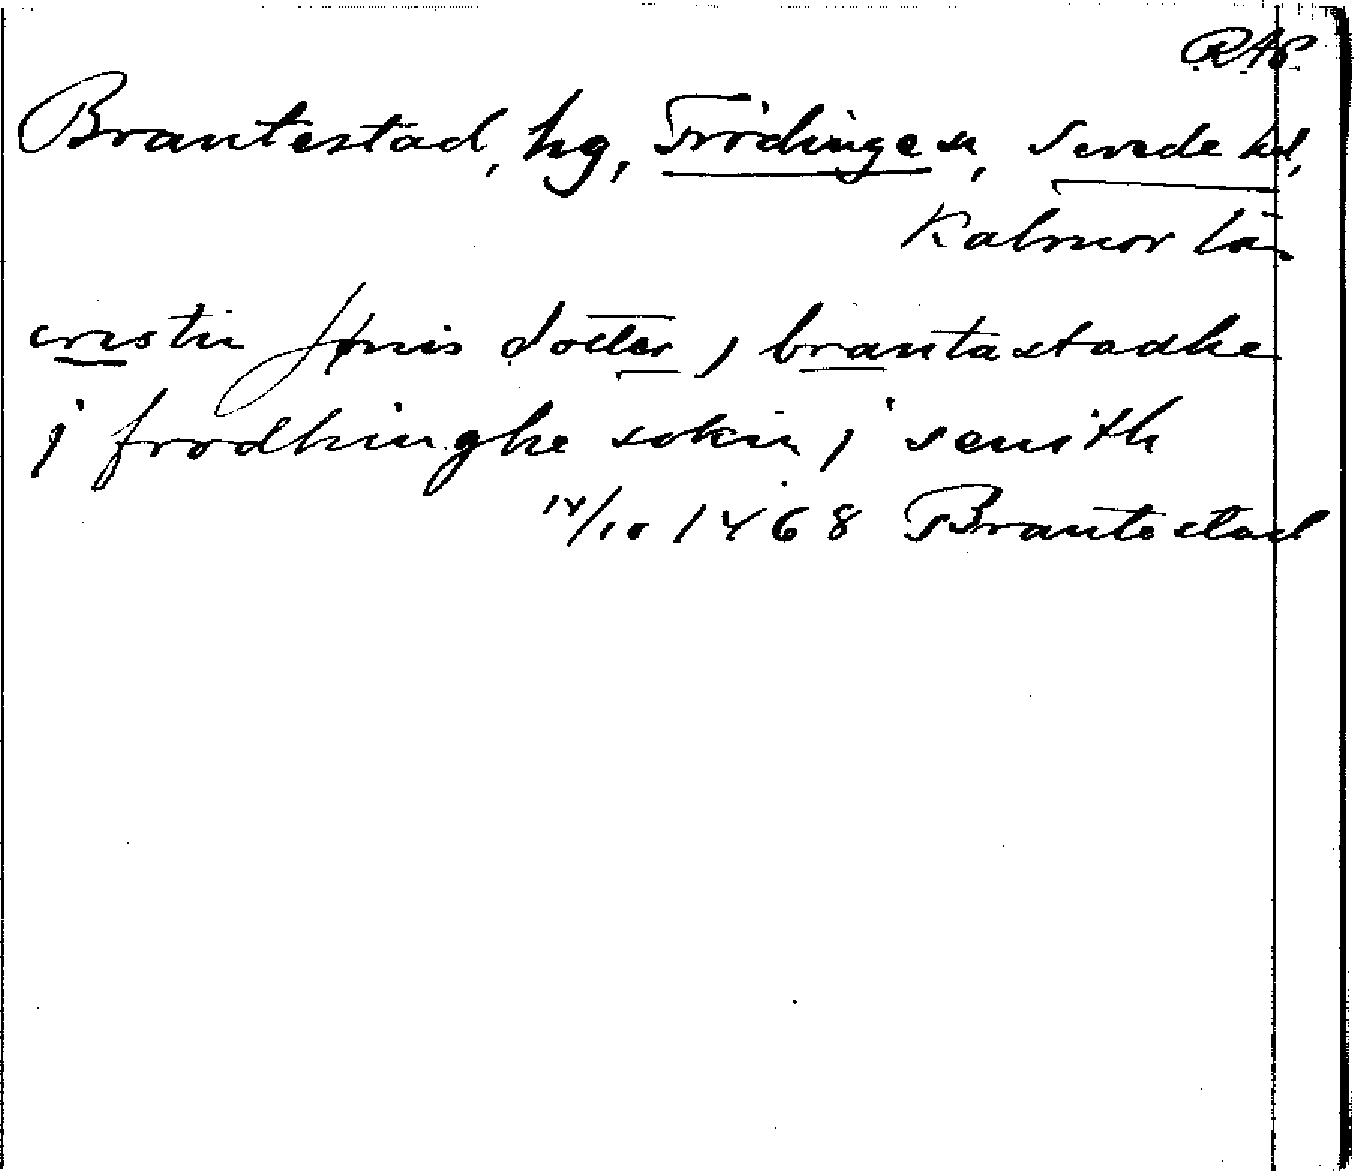 RAp
Brantestad, hg, Frödinge sn, Sevede hd,
Kalmar län
cristin jönis dotter j brantastadhe
j frodhinghe sokin j seuith
14/10 1468 Brantestad